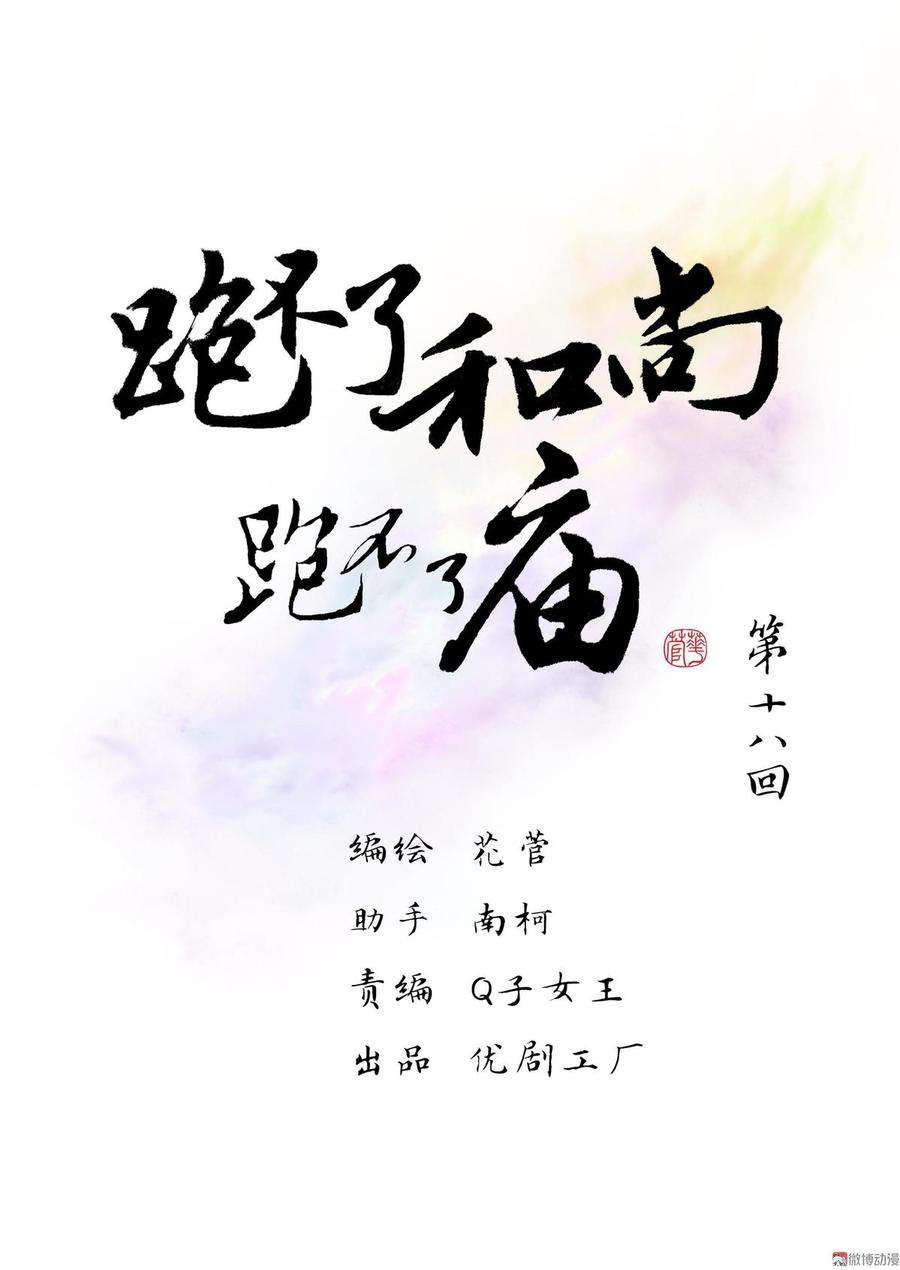 跑不了和尚
跑不了庙
華菅
第十八回
编绘 花菅
助手 南柯
责编 Q子女王
出品 优剧工厂
微博动漫